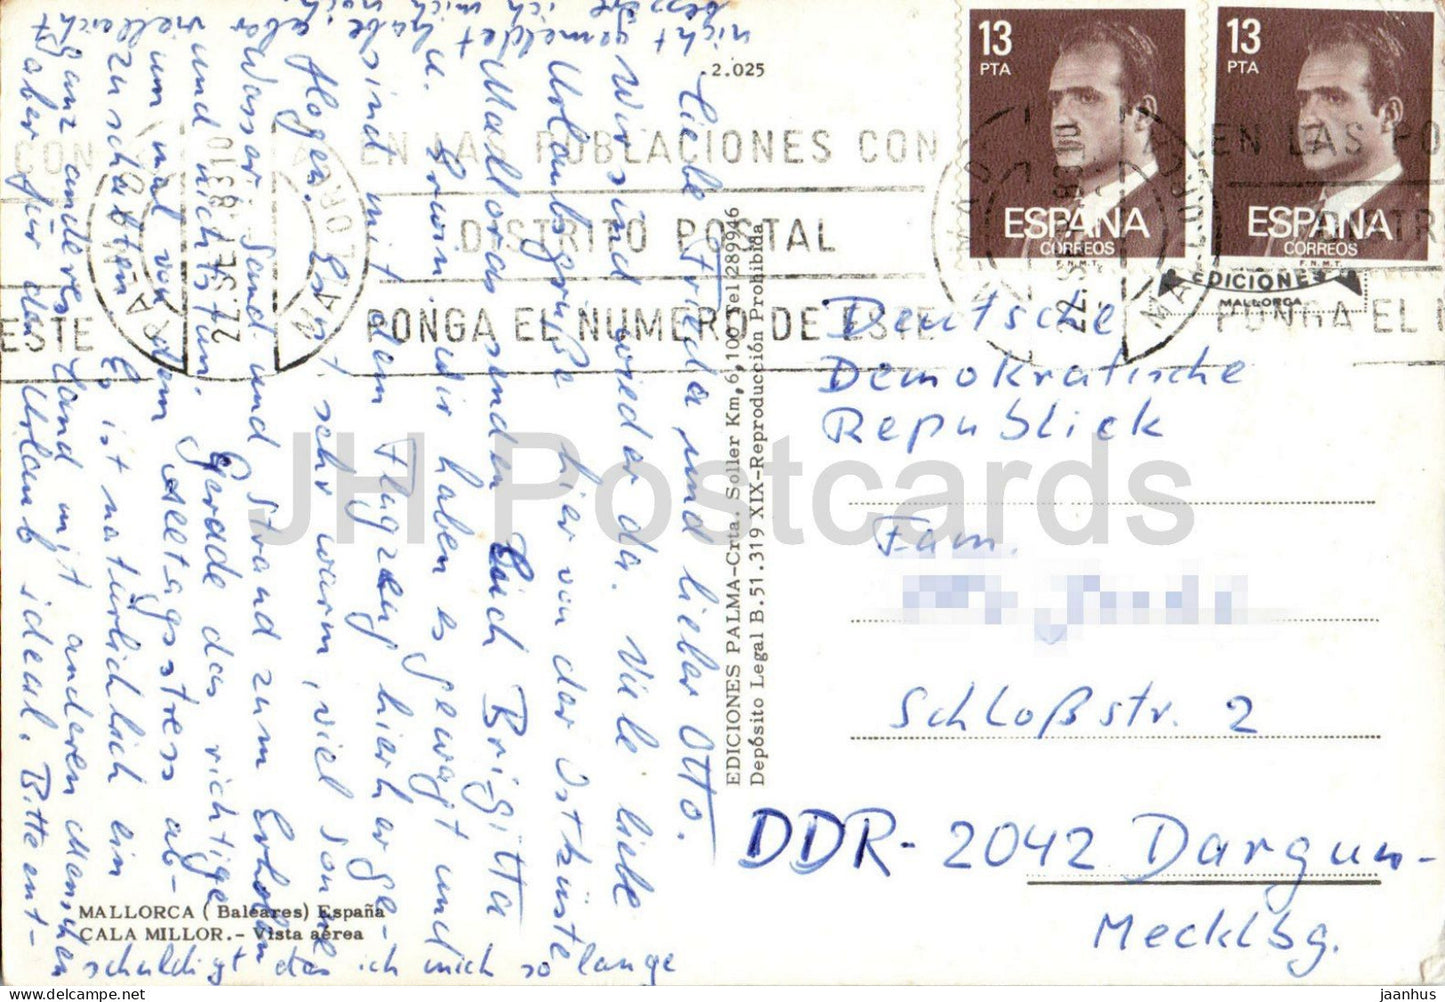 Liebe Frieda und lieber Otto.
Wir sind wieder da. Viele liebe
Urlaubsgrüße hier von der Ostküste
Mallorcas senden Euch Brigitta
u. Erwin, wir haben es gewagt und
sind mit dem Flugzeug hierherge-
flogen. Es ist sehr warm, viel Sonne
Wasser Sand und Strand zum Erholen
und nichtstun. Gerade das richtige
um mal von dem Alltagsstress ab-
zuschalten. Es ist natürlich ein
ganz anderes Land mit anderen Menschen
aber für den Urlaub ideal. Bitte ent-
schuldigt das ich mich so lange
nicht gemeldet habe, aber vielleicht
ich mich noch
2.025
EDICIONES PALMA-Crta. Soller Km, 6,100 Tel 289946
Depósito Legal B. 51.319 XIX-Reproducción Prohibida
MALLORCA (Baleares) España
CALA MILLOR.- Vista aérea
13
PTA
ESPAÑA
CORREOS
F.N.M.T.
13
PTA
ESPAÑA
CORREOS
F.N.M.T.
EN LAS POBLACIONES CON
DISTRITO POSTAL
PONGA EL NUMERO DE ESTE
22.SET.83 10
MALLORCA
EDICIONES
MALLORCA
Deutsche
Demokratische
Republick
Fam.
Schloßstr. 2
DDR- 2042 Dargun-
Mecklbg.
JH Postcards
jaanhus
www.delcampe.net